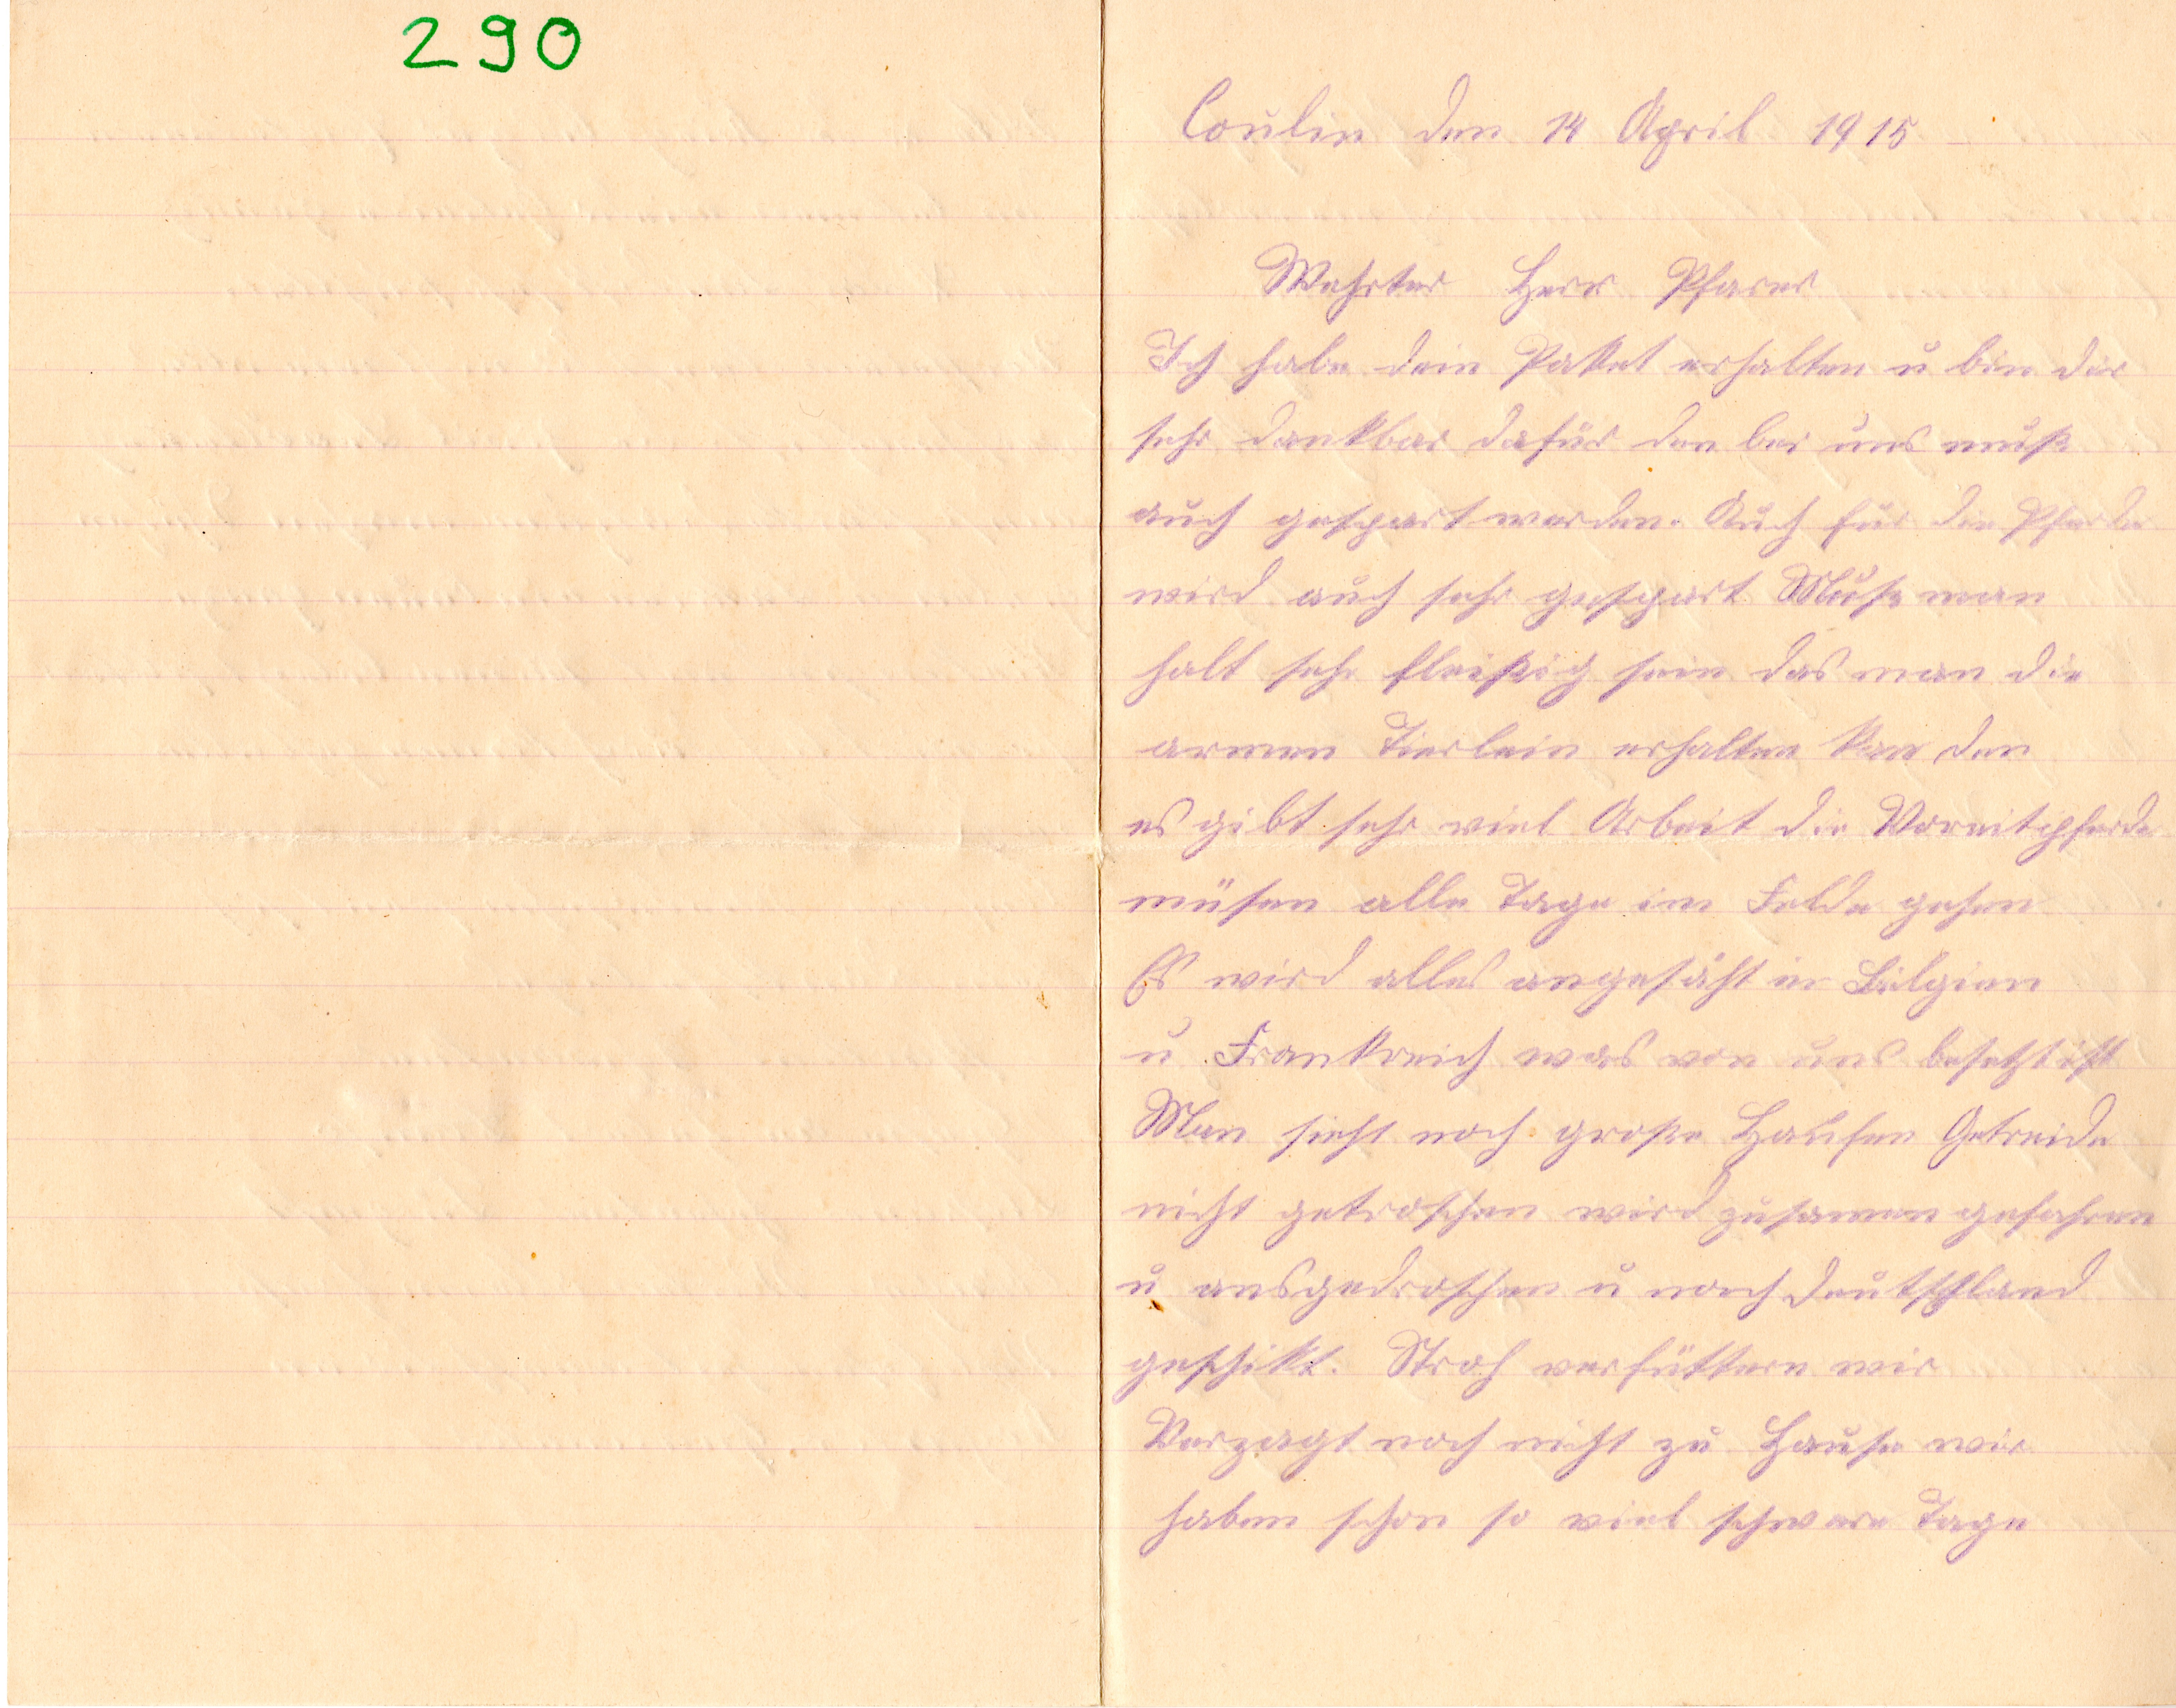 290
Coulin den 14 April 1915
Wehrter Herr Pfarer
Ich habe dein Paket erhalten u bin dir
sehr dankbar dafür den bei uns muß
auch gespart werden. Auch für die Pferde
wird auch sehr gespart Muß man
halt sehr fleißig sein das man die
armen Tierlein erhalten kan den
es gibt sehr viel Arbeit die Vorreitpferde
müsen alle Tage im Felde gehen
Es wird alles angesäht in Bälgien
u Frankreich was von uns besetzt ist
Man sieht noch große Haufen Getreide
nicht getroschen wird zusamen gefahren
u ausgedroschen u nach Deutschland
geschikt. Stroh verfüttern wir
Verzagt noch nicht zu Hause wir
haben schon so viel schwere Tage